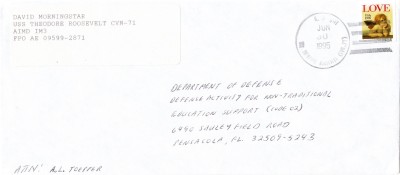 DAVID MORNINGSTAR
USS THEODORE ROOSEVELT CVN-71
AIMD IM3
FPO AE 09599-2871
LOVE
JUN
1996
DEPARTMENT OF DEFENSE
DEFENSE ACTIVITY FOR NON-TRADITIONAL
EDUCATION SUPPORT
6490 SAUFLEY FIELD ROAD
PENSACOLA, FL 32509-5243
ATTN: A.L. TOEPPER